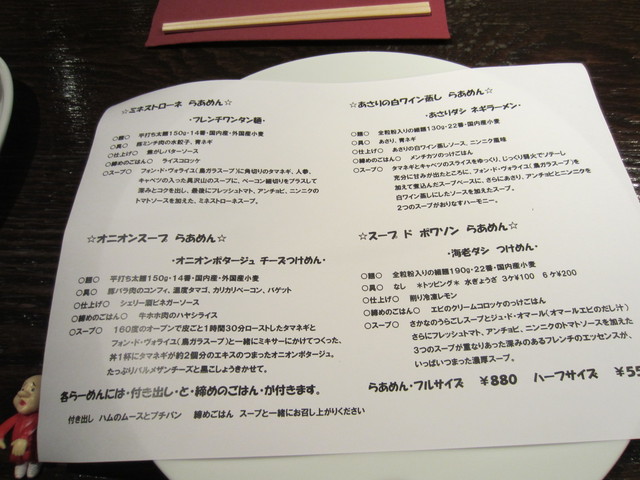 ☆ミネストローネ らあめん☆
・フレンチワンタン麺・
○麺○ 平打ち太麺150g・14番・国内産・外国産小麦
○具○ 豚ミンチ肉の水餃子、青ネギ
○仕上げ○ 焦がしバターソース
○締めのごはん○ ライスコロッケ
○スープ○ フォン・ド・ヴォライユ(鳥ガラスープ)に角切りのタマネギ、人参、
キャベツの入った具沢山のスープに、ベーコン細切りをプラスして
深みとコクを出し、最後にフレッシュトマト、アンチョビ、ニンニクの
トマトソースを加えた、ミネストローネスープ。
☆オニオンスープ らあめん☆
・オニオンポタージュ チーズつけめん・
○麺○ 平打ち太麺150g・14番・国内産・外国産小麦
○具○ 豚バラ肉のコンフィ、温度タマゴ、カリカリベーコン、バゲット
○仕上げ○ シェリー酒ビネガーソース
○締めのごはん○ 牛ホホ肉のハヤシライス
○スープ○ 160度のオーブンで皮ごと1時間30分ローストしたタマネギと
フォン・ド・ヴォライユ(鳥ガラスープ)と一緒にミキサーにかけてつくった、
丼1杯にタマネギが約2個分のエキスのつまったオニオンポタージュ。
たっぷりパルメザンチーズと黒こしょうきかせて。
各らーめんには・付き出し・と・締めのごはん・が付きます。
付き出し ハムのムースとプチパン 締めごはん スープと一緒にお召し上がりください
☆あさりの白ワイン蒸し らあめん☆
・あさりダシ ネギラーメン・
○麺○ 全粒粉入りの細麺130g・22番・国内産小麦
○具○ あさり、青ネギ
○仕上げ○ あさりの白ワイン蒸しソース、ニンニク風味
○締めのごはん○ メンチカツのっけごはん
○スープ○ タマネギとキャベツのスライスをゆっくり、じっくり弱火でソテーし
充分に甘みが出たところに、フォン・ド・ヴォライユ(鳥ガラスープ)を
加えて煮込んだスープベースに、さらにあさり、アンチョビとニンニクを
白ワイン蒸しにしたソースを加えたスープ。
2つのスープがおりなすハーモニー。
☆スープ ド ポワソン らあめん☆
・海老ダシ つけめん・
○麺○ 全粒粉入りの細麺190g・22番・国内産小麦
○具○ なし *トッピング* 水ぎょうざ 3ケ¥100 6ケ¥200
○仕上げ○ 削り冷凍レモン
○締めのごはん○ エビのクリームコロッケのっけごはん
○スープ○ さかなのうらごしスープとジュ・ド・オマール(オマールエビのだし汁)
さらにフレッシュトマト、アンチョビ、ニンニクのトマトソースを加えた
3つのスープが重なりあった深みのあるフレンチのエッセンスが、
いっぱいつまった濃厚スープ。
らあめん・フルサイズ ¥880 ハーフサイズ ¥55